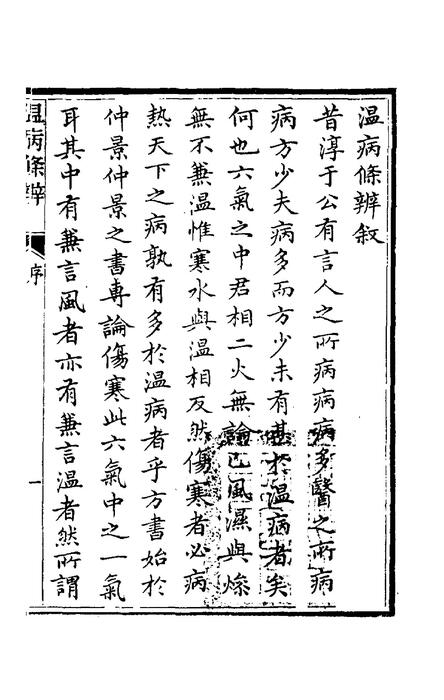 溫病條辨叙
昔淳于公有言人之所病病病多醫之所病
病方少夫病多而方少未有甚於溫病者矣
何也六氣之中君相二火無論已風濕與燥
無不兼溫惟寒水與溫相反然傷寒者必病
熱天下之病孰有多於溫病者乎方書始於
仲景仲景之書專論傷寒此六氣中之一氣
耳其中有兼言風者亦有兼言溫者然所謂
溫病條辨
序
一